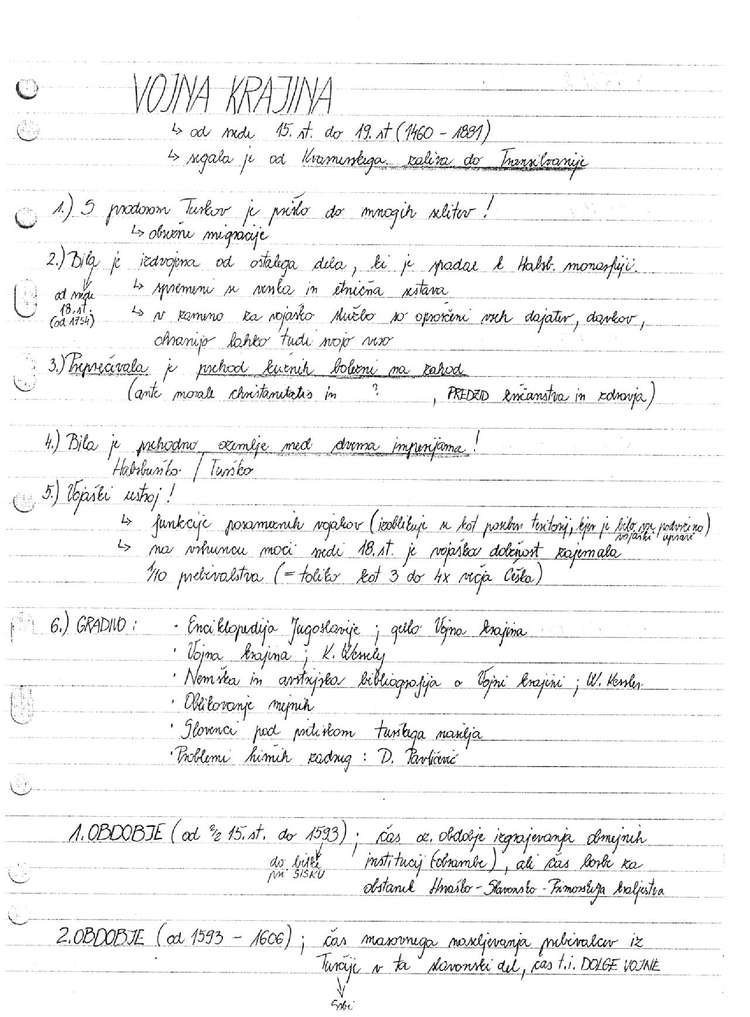 VOJNA KRAJINA
↳ od srede 15. st. do 19. st (1460 - 1881)
↳ segala je od Kvarnerskega zaliva do Transilvanije
1.) S prodorom Turkov je prišlo do mnogih selitev!
↳ obvezne migracije
2.) Bila je izdvojena od ostalega dela, ki je spadal k Habsb. monarhiji.
od srede 18. st. (od 1754)
↳ spremeni se verska in etnična sestava
↳ v zameno za vojaško službo so oproščeni vseh dajatev, davkov,
ohranijo lahko tudi svojo vero
3.) Preprečevala je prehod kužnih bolezni na zahod
(ante morale christianitatis in ? , PREDZID krščanstva in zdravja)
4.) Bila je prehodno ozemlje med dvema imperijama!
Habsburško / Turško
5.) Vojaški ustroj!
↳ funkcije posameznih vojakov (izoblikuje se kot poseben teritorij, kjer je bilo vse podvrženo vojaški upravi)
↳ na vrhuncu moči sredi 18. st. je vojaška dolžnost zajemala
1/10 prebivalstva (= toliko kot 3 do 4x večja Češka)
6.) GRADIVO: · Enciklopedija Jugoslavije; geslo Vojna krajina
· Vojna krajina; K. Wessely
· Nemška in avstrijska bibliografija o Vojni krajini; W. Kessler
· Oblikovanje mejnih
· Slovenci pod pritiskom turškega nasilja
· Problemi hišnih zadrug: D. Pavličević
1. OBDOBJE (od 2/2 15. st. do 1593); čas oz. obdobje izgrajevanja obmejnih
do bitke pri SISKU
institucij (obrambe), ali čas borbe za
obstanek Hrvaško-Slavonsko-Primorskega kraljestva
2. OBDOBJE (od 1593 - 1606); čas masovnega naseljevanja prebivalcev iz
Turčije v ta slavonski del, čas t.i. DOLGE VOJNE
Srbi